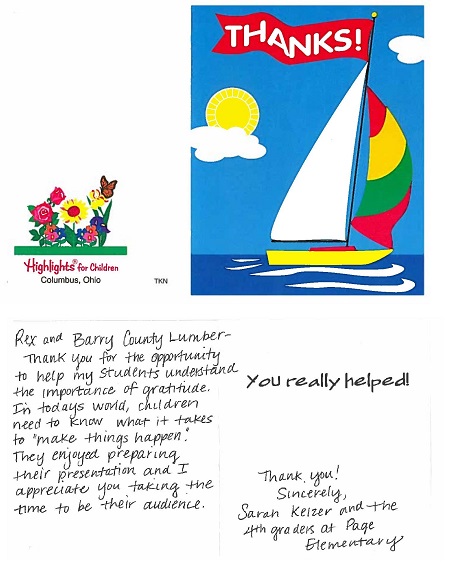 THANKS!
Highlights® for Children
Columbus, Ohio
TKN
Rex and Barry County Lumber-
Thank you for the opportunity
to help my students understand
the importance of gratitude.
In todays world, children
need to know what it takes
to "make things happen".
They enjoyed preparing
their presentation and I
appreciate you taking the
time to be their audience.
You really helped!
Thank you!
Sincerely,
Sarah Keizer and the
4th graders at Page
Elementary